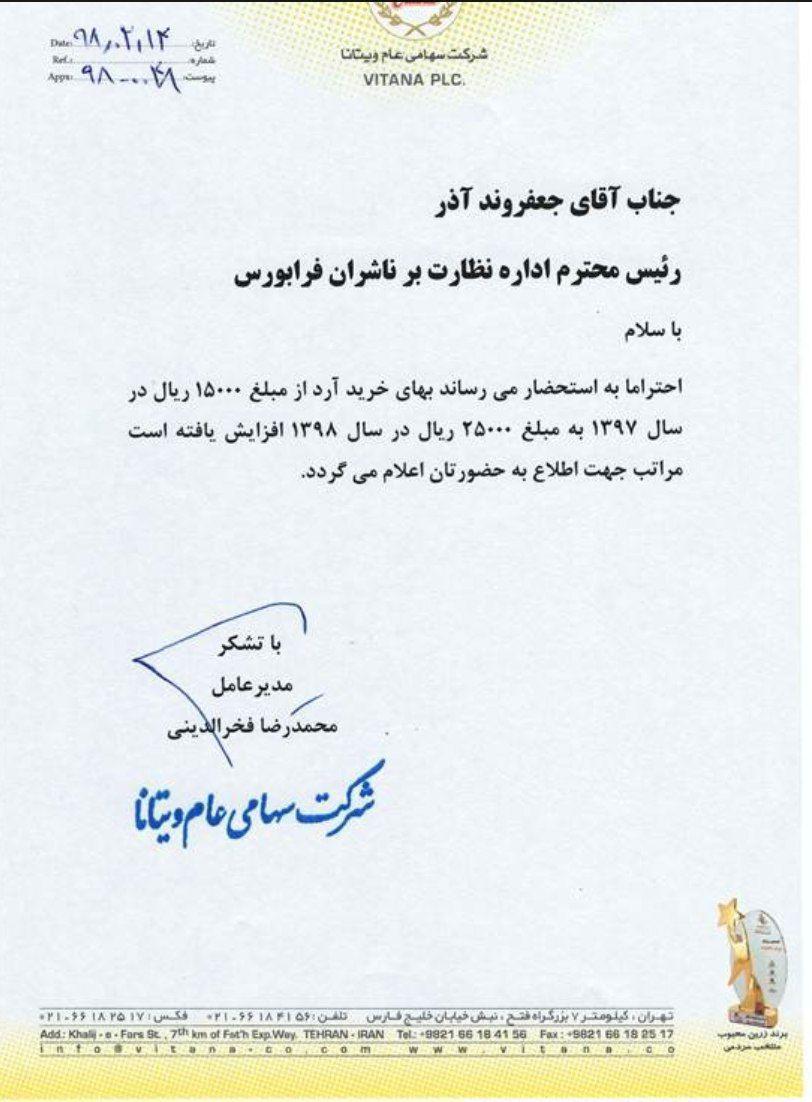 شرکت سهامی عام ویتانا
VITANA PLC.
تاریخ: ۹۸,۰۲,۱۴ Date:
شماره: Ref.:
پیوست: ۹۸-۰۰۴۸ Appx:
جناب آقای جعفروند آذر
رئیس محترم اداره نظارت بر ناشران فرابورس
با سلام
احتراما به استحضار می رساند بهای خرید آرد از مبلغ ۱۵۰۰۰ ریال در
سال ۱۳۹۷ به مبلغ ۲۵۰۰۰ ریال در سال ۱۳۹۸ افزایش یافته است
مراتب جهت اطلاع به حضورتان اعلام می گردد.
با تشکر
مدیرعامل
محمدرضا فخرالدینی
شرکت سهامی عام ویتانا
تهران ، کیلومتر ۷ بزرگراه فتح ، نبش خیابان خلیج فارس تلفن: ۵۶ ۴۱ ۱۸ ۶۶ - ۰۲۱ فکس: ۱۷ ۲۵ ۱۸ ۶۶ - ۰۲۱
Add.: Khalij - e - Fars St. , 7th km of Fat'h Exp.Way. TEHRAN - IRAN Tel.: +9821 66 18 41 56 Fax : +9821 66 18 25 17
info@vitana-co.com www.vitana.co
برند زرین محبوب
منتخب مردمی